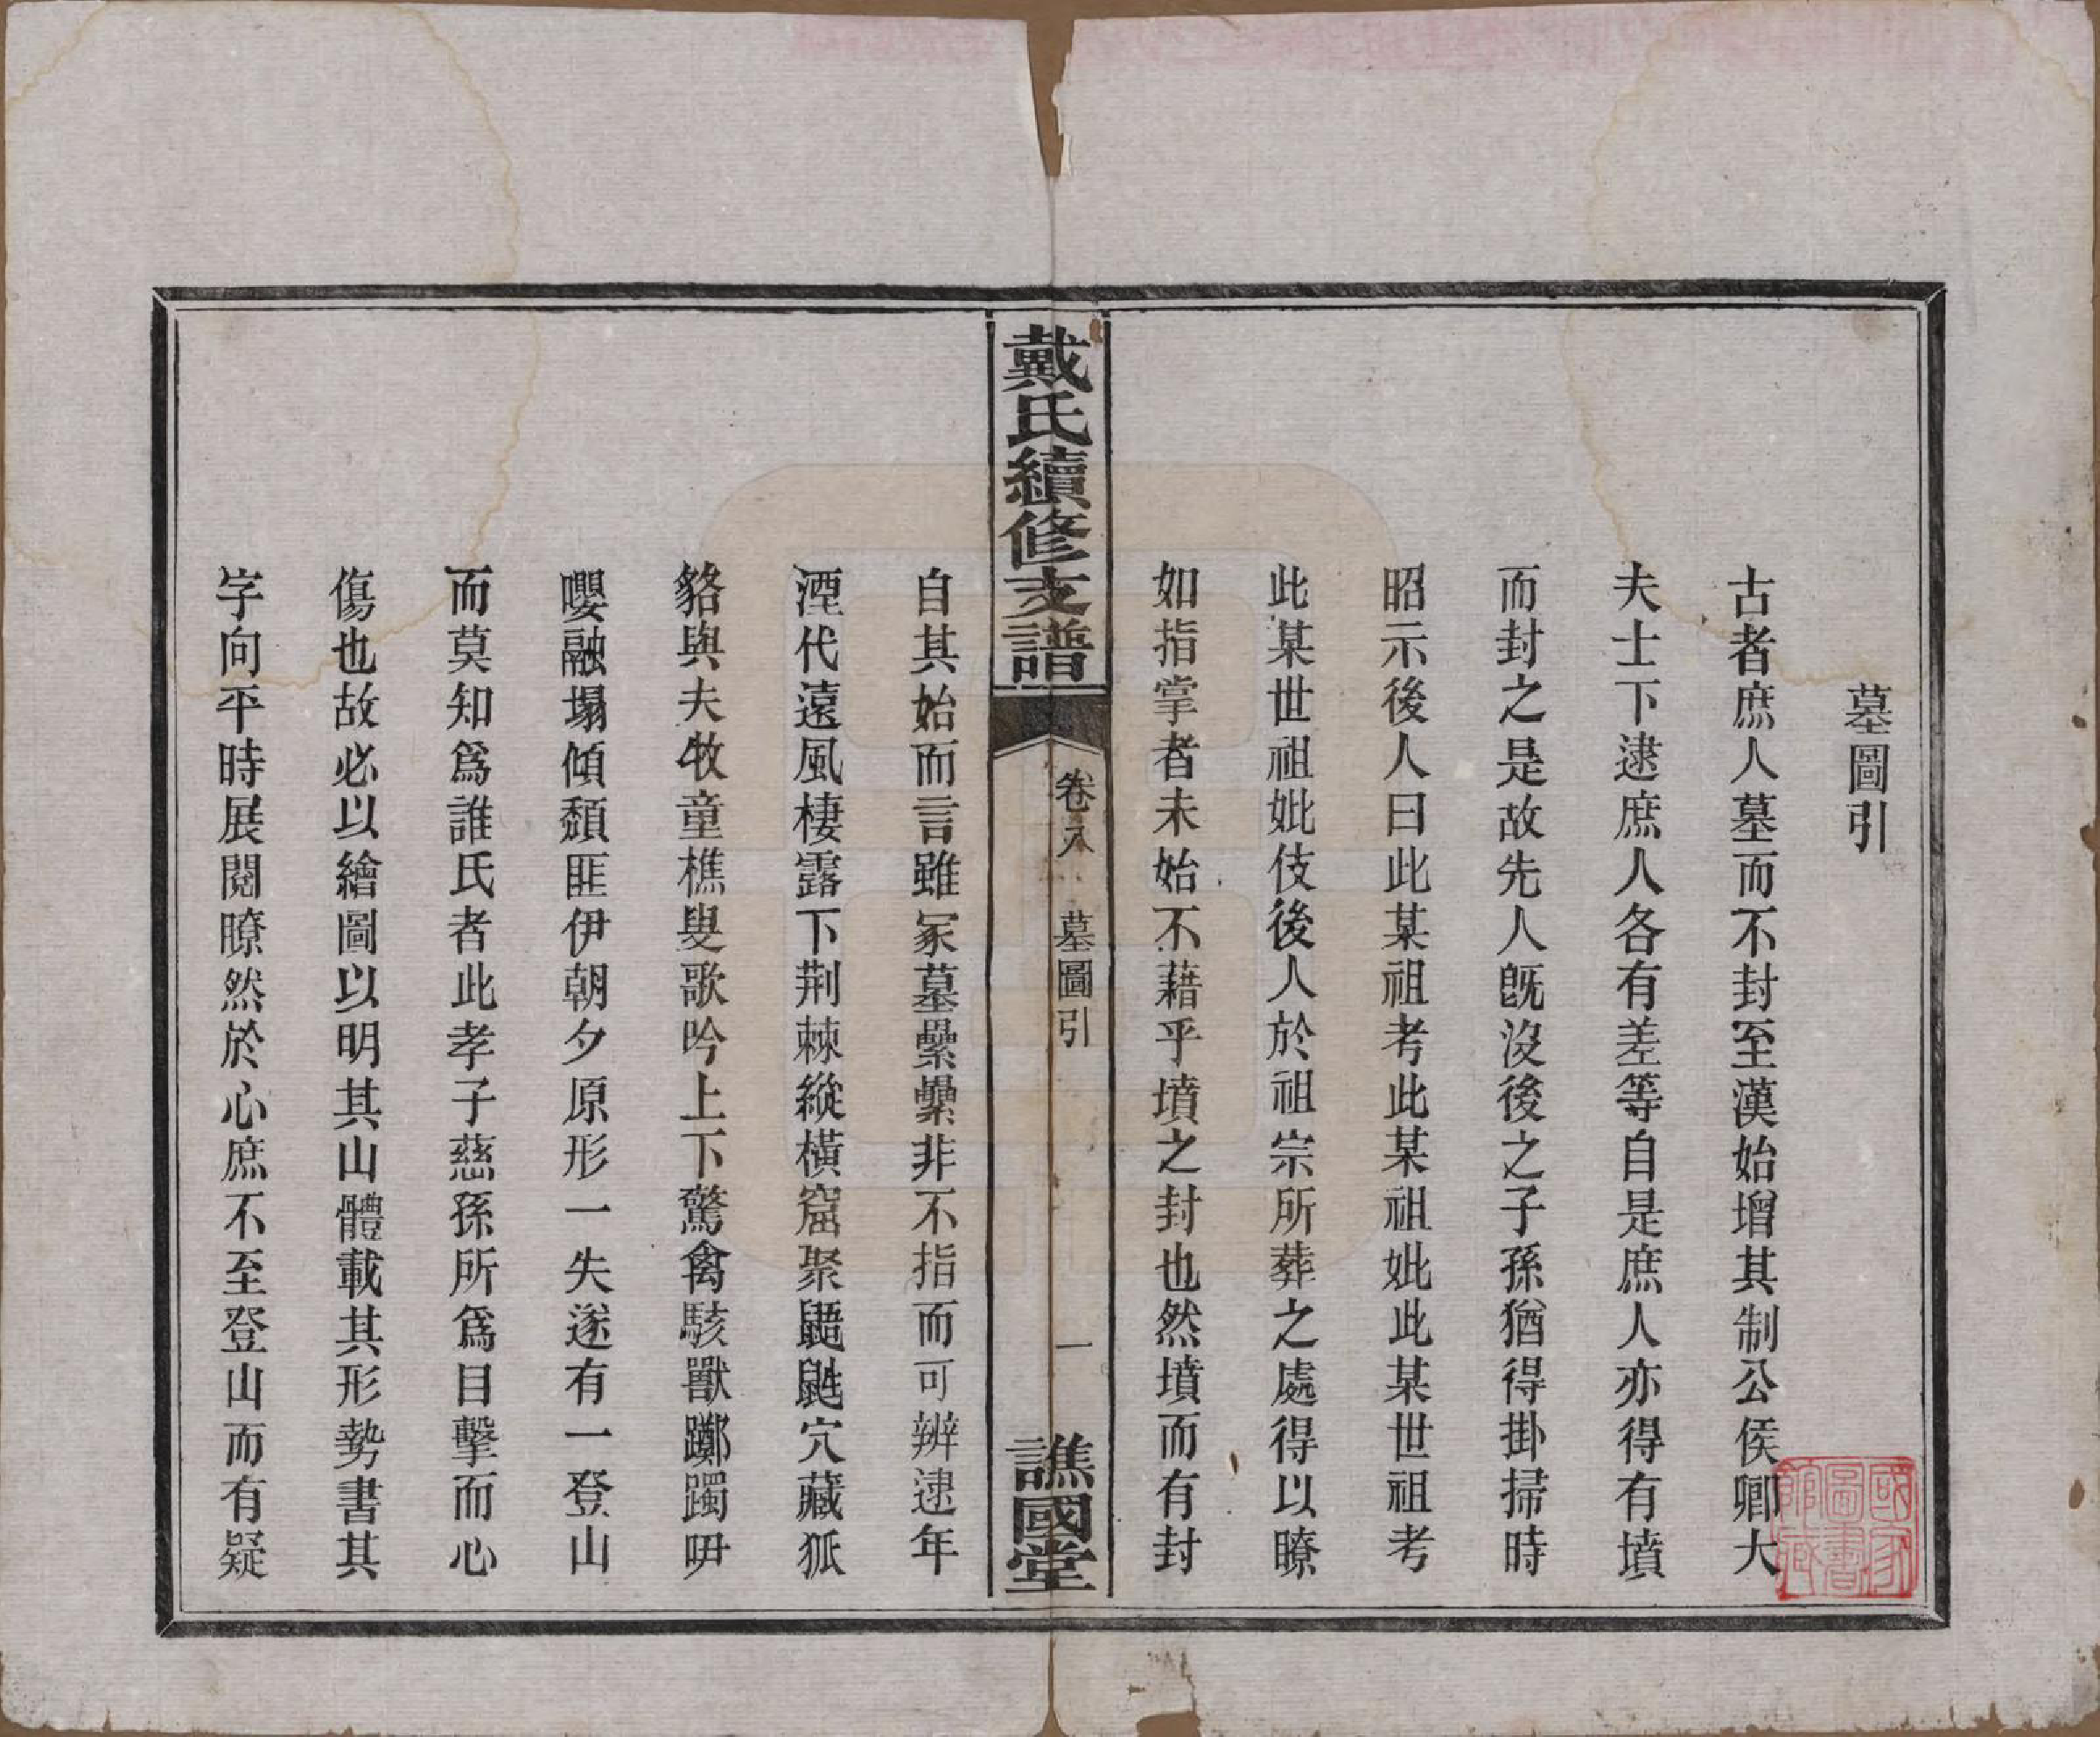 墓圖引
古者庶人墓而不封至漢始增其制公侯卿大
夫士下逮庶人各有差等自是庶人亦得有墳
而封之是故先人旣沒後之子孫猶得掛掃時
昭示後人曰此某祖考此某祖妣此某世祖考
此某世祖妣伎後人於祖宗所葬之處得以瞭
如指掌者未始不藉乎墳之封也然墳而有封
戴氏續修支譜
卷八
墓圖引
一
譙國堂
自其始而言雖冢墓纍纍非不指而可辨逮年
湮代遠風棲露下荆棘縱橫窟聚鼯鼪穴藏狐
貉與夫牧童樵叟歌吟上下驚禽駭獸躑躅呀
嚶融塌傾頹匪伊朝夕原形一失遂有一登山
而莫知爲誰氏者此孝子慈孫所爲目擊而心
傷也故必以繪圖以明其山體載其形勢書其
字向平時展閱瞭然於心庶不至登山而有疑
國家
圖書
館藏